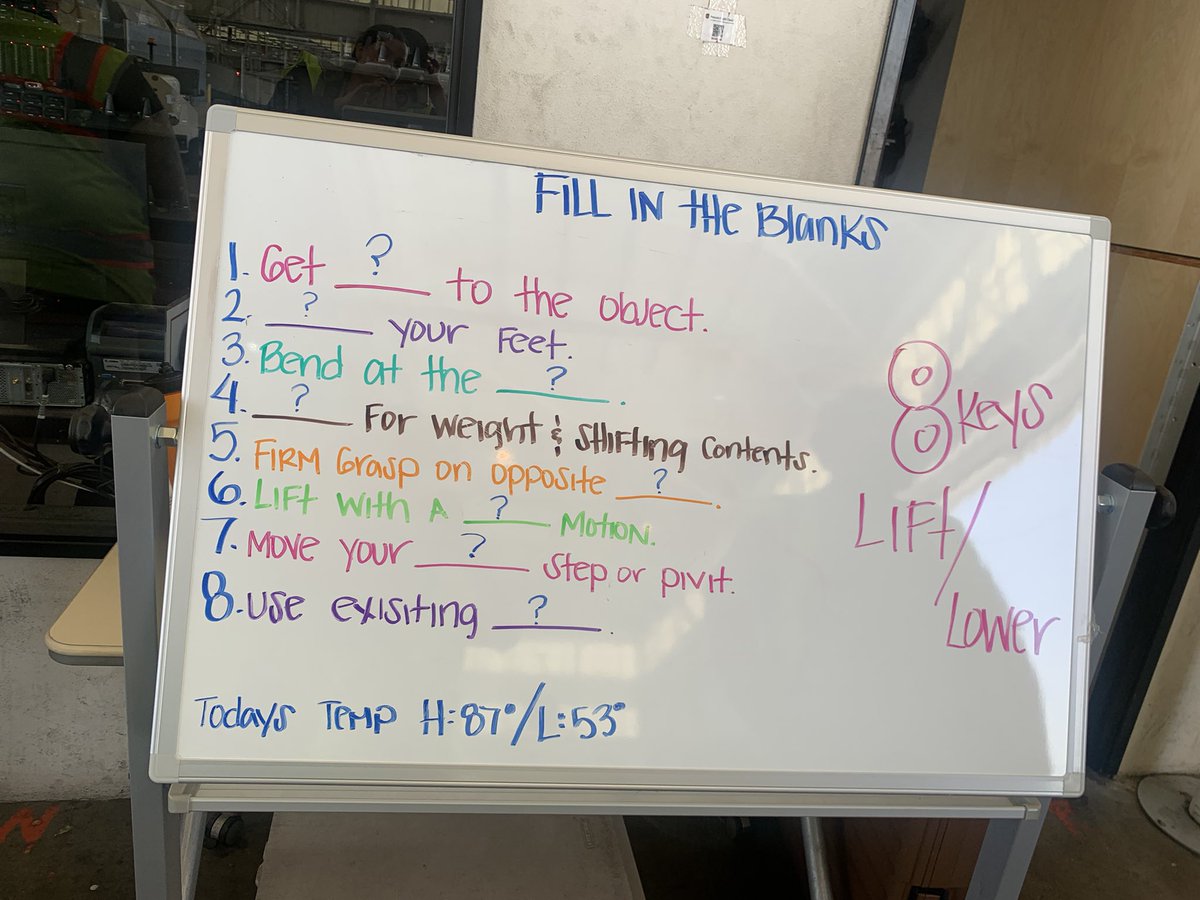 Fill in the Blanks
1. Get ? to the object.
2. ? your Feet.
3. Bend at the ?.
4. ? For Weight & Shifting Contents.
5. Firm Grasp on opposite ?.
6. Lift with a ? Motion.
7. Move your ? step or pivit.
8. Use exisiting ?.
8 Keys
Lift/
Lower
Todays Temp H:87°/L:53°